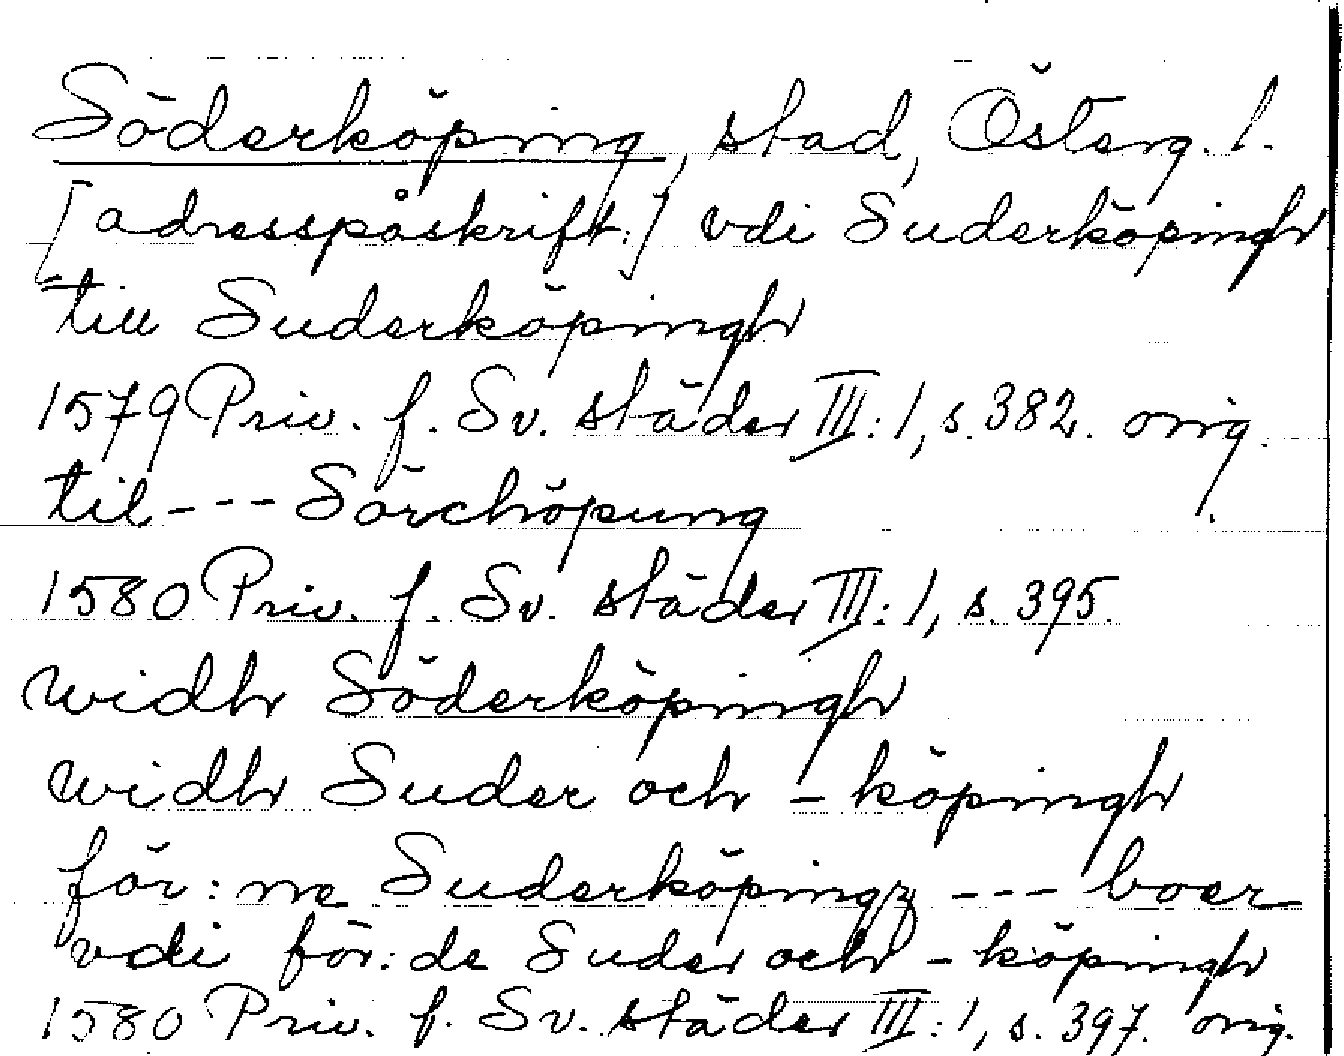 Söderköping, stad, Österg. l.
[adresspåskrift:] vdi Suderköpingh
till Suderköpingh
1579 Priv. f. Sv. städer III: 1, s. 382. orig.
til --- Sörchöpung
1580 Priv. f. Sv. städer III: 1, s. 395.
widh Söderköpingh
widh Suder och - köpingh
för:ne Suderköpingz --- boer
vdi för:de Suder och - köpingh
1580 Priv. f. Sv. städer III: 1, s. 397. orig.